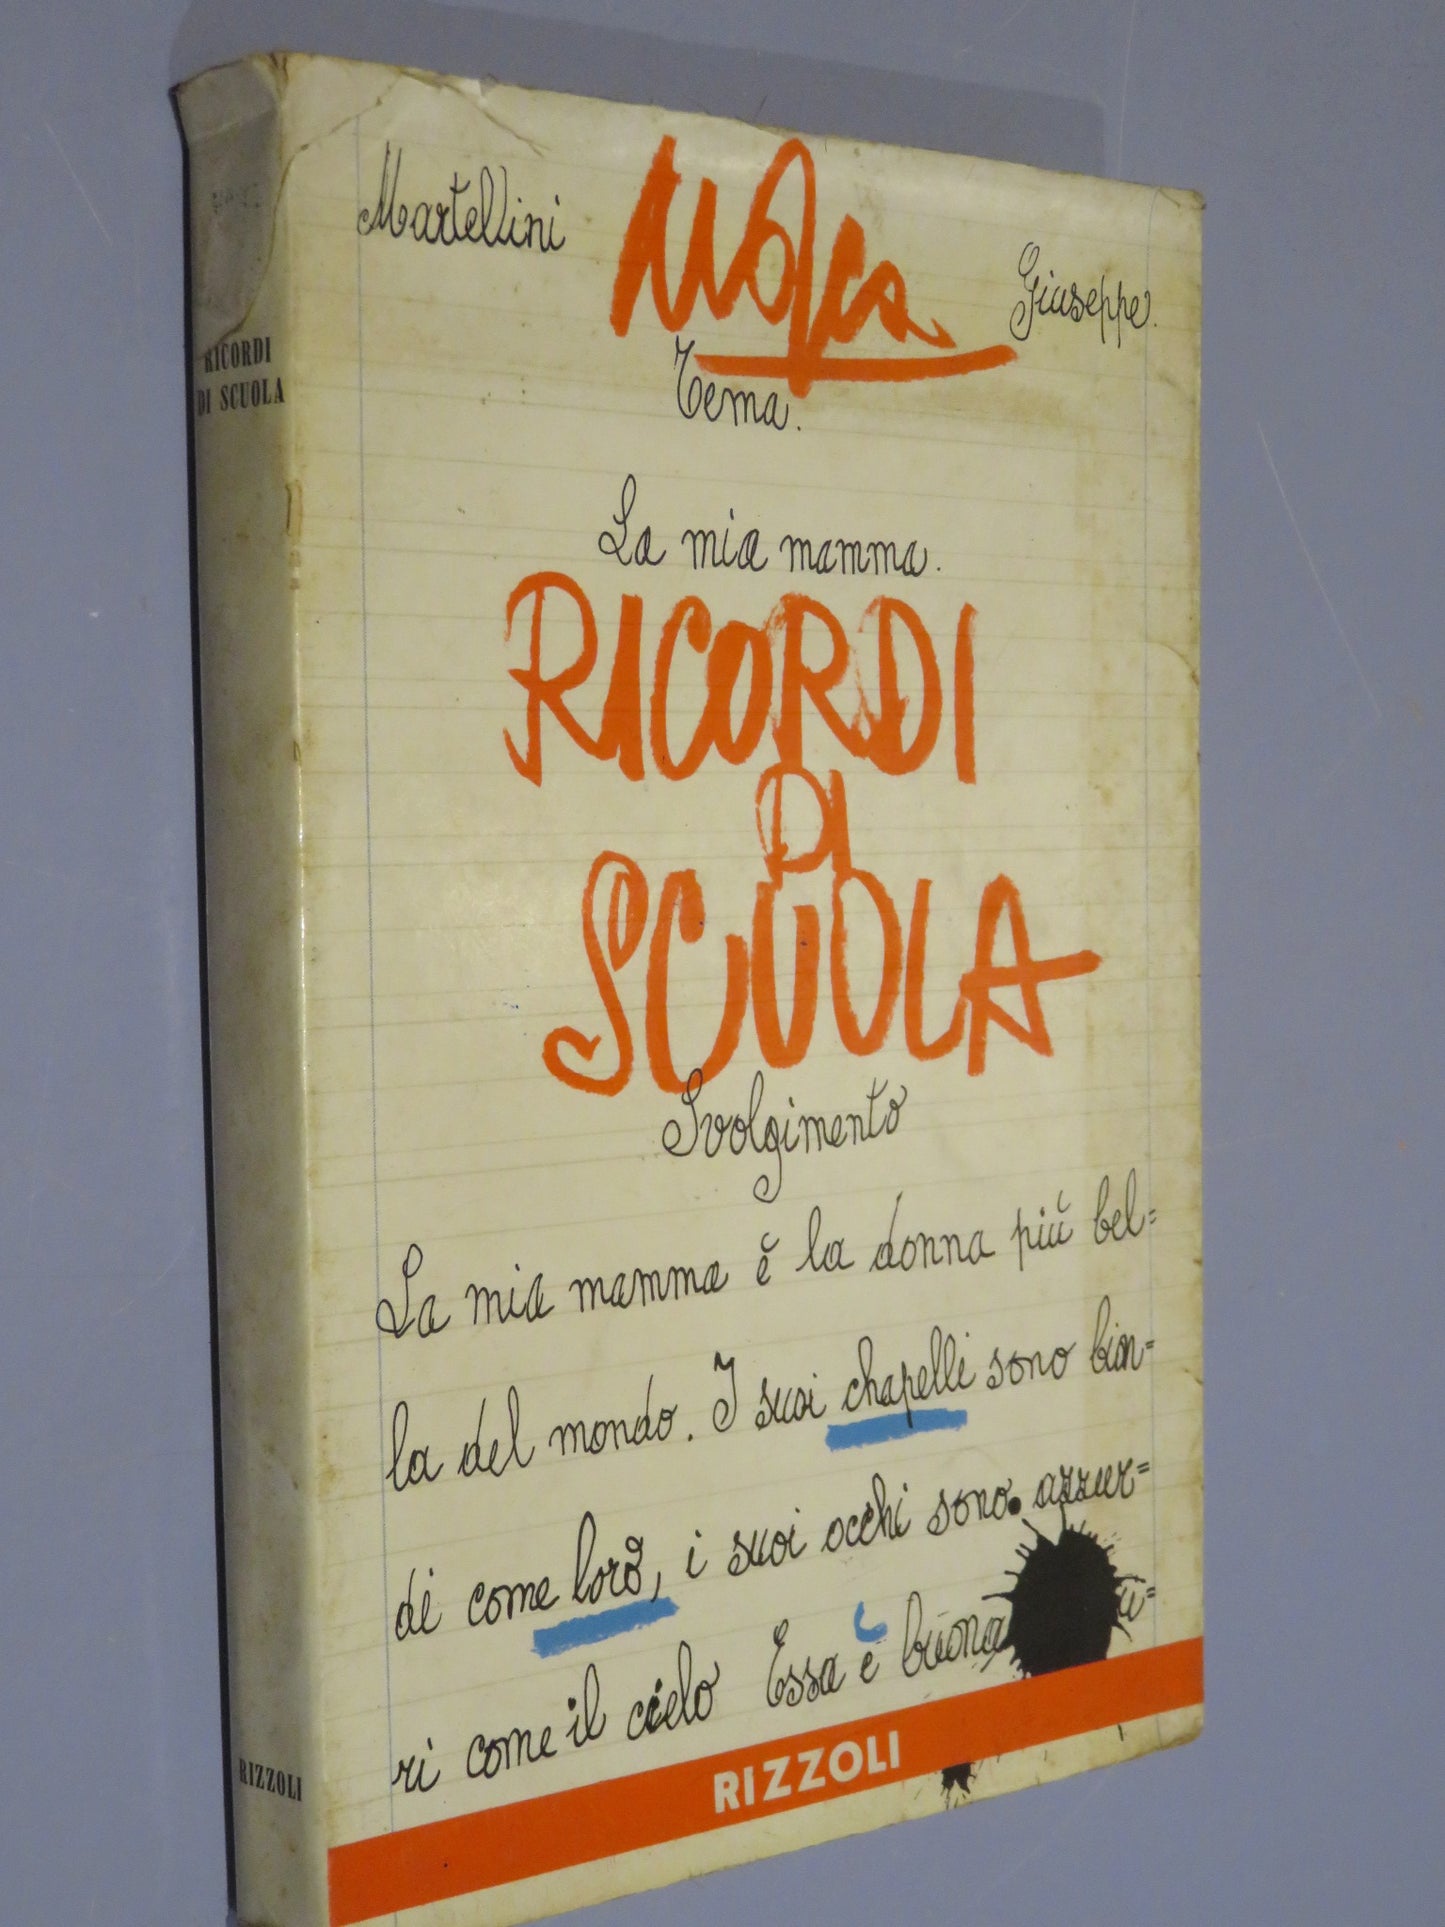 RICORDI
DI SCUOLA
RIZZOLI
Martellini
Mosca
Giuseppe.
Tema.
La mia mamma.
RICORDI
DI
SCUOLA
Svolgimento
La mia mamma ĕ la donna piŭ bel=
la del mondo. I suoi chapelli sono bion=
di come lorŏ, i suoi occhi sono azzur=
ri come il cielo Essa ĕ buona
RIZZOLI